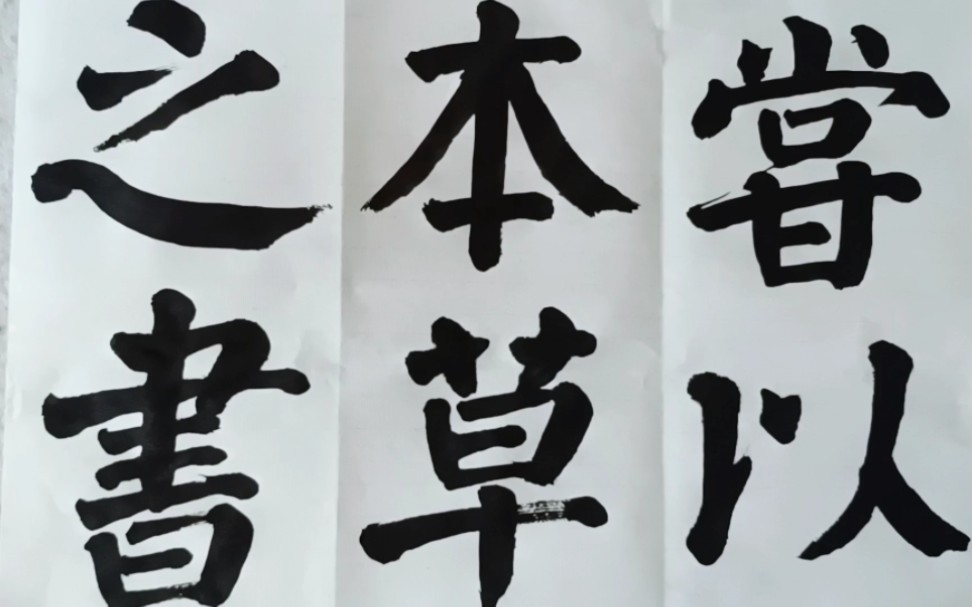 甞以
本草
之書